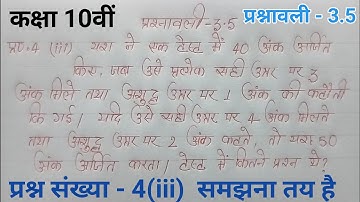 कक्षा 10वीं
प्रश्नावली-3.5
प्रश्नावली - 3.5
प्र०-4 (iii) यश ने एक टेस्ट में 40 अंक अर्जित
किए, जब उसे प्रत्येक सही उत्तर पर 3
अंक मिले तथा अशुद्ध उत्तर पर 1 अंक की कटौती
कि गई। यदि उसे सही उत्तर पर 4 अंक मिलते
तथा अशुद्ध उत्तर पर 2 अंक कटते तो यश 50
अंक अर्जित करता। टेस्ट में कितने प्रश्न थे?
प्रश्न संख्या - 4(iii) समझना तय है